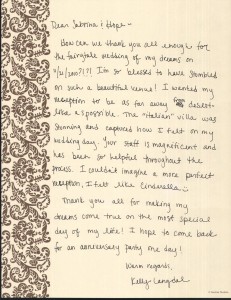 Dear Sabrina & Hope -
How can we thank you all enough for
the fairytale wedding of my dreams on
I'm so blessed to have stumbled
on such a beautiful venue! I wanted my
reception to be as far away desert-
like as possible. The "italian" villa was
stunning and captured how I felt on my
wedding day. Your staff is magnificent and
has been so helpful throughout the
process. I couldn't imagine a more perfect
reception, I felt like Cinderella
Thank you all for making my
dreams come true on the most special
day of my life! I hope to come back
for an anniversary party one day!
Warm regards,
Kelly